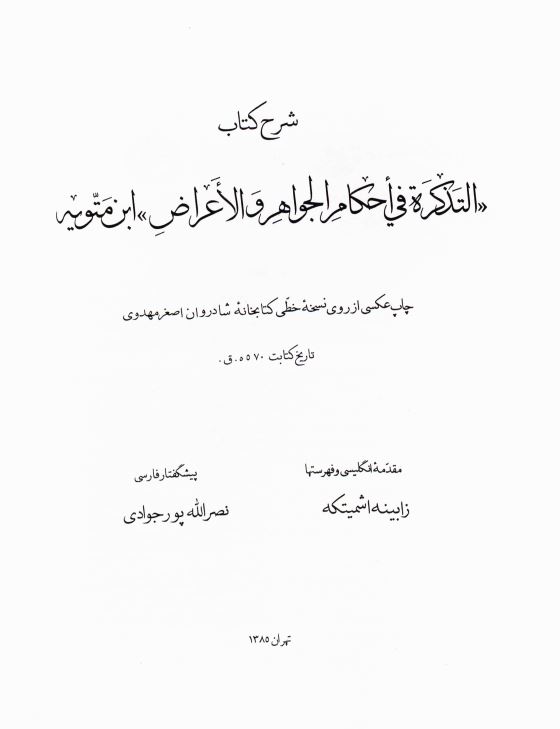 شرح کتاب
«التَذکرَة في أحکامِ الجواهِرِ وَ الأَعراضِ» ابن مَتّویه
چاپ عکسی از روی نسخهٔ خطّی کتابخانهٔ شادروان اصغر مهدوی
تاریخ کتابت ٥٧٠ ه‍.ق.
مقدّمهٔ انگلیسی و فهرستها
زابینه اشمیتکه
پیشگفتار فارسی
نصرالله پورجوادی
تهران ۱۳۸۵